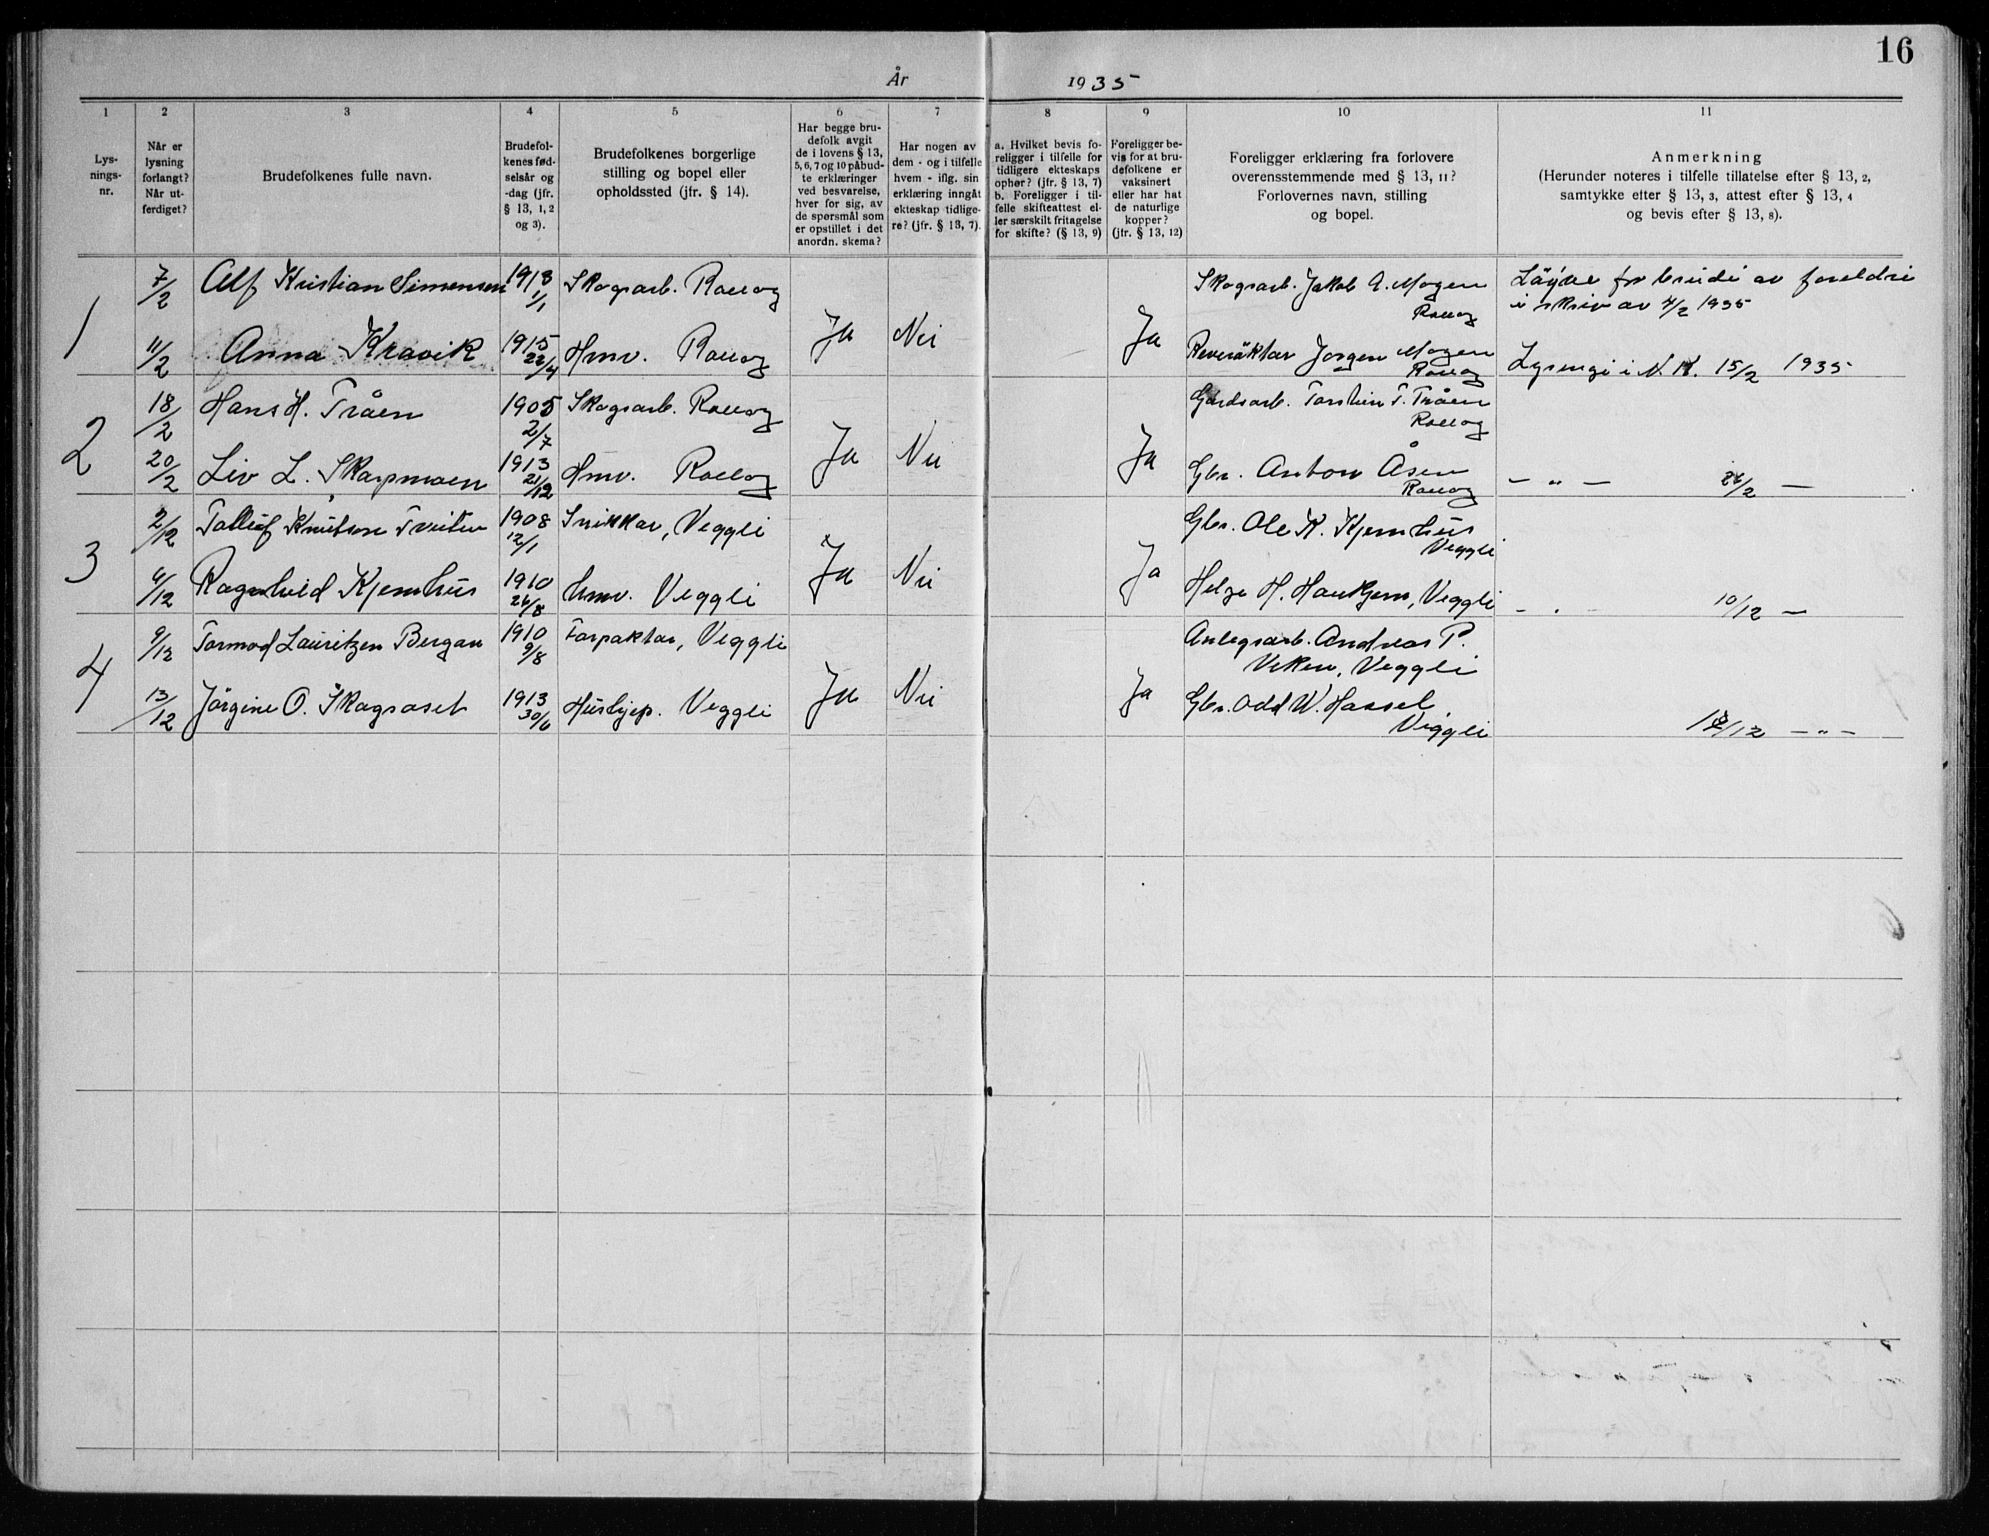 16
År 1935
1 2 3 4 5 6 7 8 9 10 11
Lys-
nings-
nr.
Når er
lysning
forlangt?
Når ut-
ferdiget?
Brudefolkenes fulle navn.
Brudefol-
kenes fød-
selsår og
-dag (jfr.
§ 13, 1, 2
og 3).
Brudefolkenes borgerlige
stilling og bopel eller
opholdssted (jfr. § 14).
Har begge bru-
defolk avgit
de i lovens § 13,
5, 6, 7 og 10 påbud-
te erklæringer
ved besvarelse,
hver for sig, av
de spørsmål som
er opstillet i det
anordn. skema?
Har nogen av
dem - og i tilfelle
hvem - iflg. sin
erklæring inngåt
ekteskap tidlige-
re? (jfr. § 13, 7).
a. Hvilket bevis fo-
religger i tilfelle for
tidligere ekteskaps
ophør? (jfr. § 13, 7)
b. Foreligger i til-
felle skifteattest el-
ler særskilt fritagelse
for skifte? (§ 13, 9)
Foreligger be-
vis for at bru-
defolkene er
vaksinert
eller har hat
de naturlige
kopper?
(jfr. § 13, 12)
Foreligger erklæring fra forlovere
overensstemmende med § 13, 11?
Forlovernes navn, stilling
og bopel.
Anmerkning
(Herunder noteres i tilfelle tillatelse efter § 13, 2,
samtykke efter § 13, 3, attest efter § 13, 4
og bevis efter § 13, 8).
1
7/2 Alf Kristian Simensen 1913 1/1 Skogsarb. Rollag
11/2 Anna Kravik 1915 22/4 Hmv. Rollag
Ja Nei Ja
Skogsarb. Jakob A. Mogen
Rollag
Reverøktar Jorgen Mogen
Rollag
Løyve for brudi av foreldri
i skriv av 4/2 1935
Lysengi i N. K. 15/2 1935
2
18/2 Hans H. Tråen 1905 2/7 Skogsarb. Rollag
20/2 Liv L. Skarpmoen 1913 21/12 Hmv. Rollag
Ja Nei Ja
Gardsarb. Torstein T. Tråen
Rollag
Gbr. Anton Åsen
Rollag
— „ — /2 —
3
2/12 Tollef Knutson Tveiten 1908 12/1 Snikkar, Veggli
6/12 Ragnhild Kjemhus 1910 26/8 hmv. Veggli
Ja Nei Ja
Gbr. Ole K. Kjemhus
Veggli
Helge H. Haukjem, Veggli
- „ - 10/12 —
4
9/12 Tormod Lauritzen Bergan 1910 9/8 Forpaktar, Veggli
13/12 Jörgine O. Skogsaset 1913 30/6 Hushjep. Veggli
Ja Nei Ja
Anlegsarb. Andreas P.
Veken, Veggli
Gbr. Odd W. Hassel
Veggli
/12 — „ —